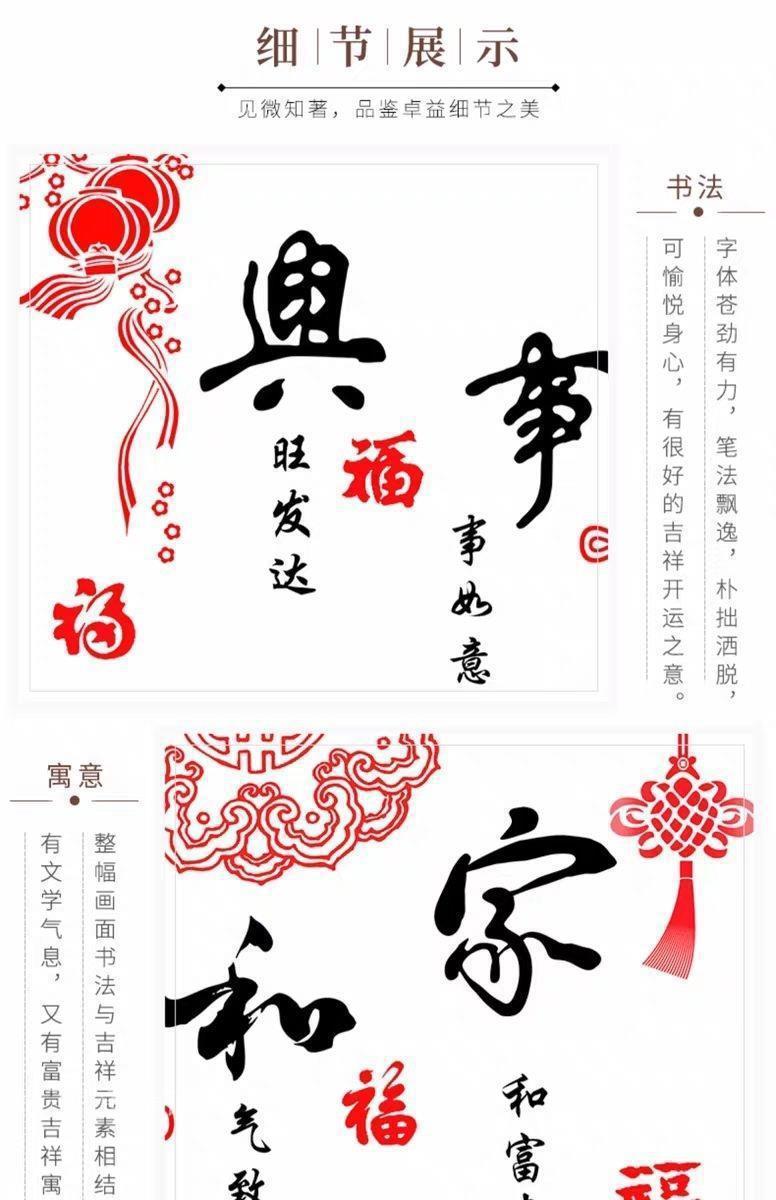 细节展示
见微知著，品鉴卓益细节之美
书法
字体苍劲有力，笔法飘逸，朴拙洒脱，
可愉悦身心，有很好的吉祥开运之意。
事
事如意
興
旺发达
福
福
寓意
整幅画面书法与吉祥元素相结
有文学气息，又有富贵吉祥寓
家
和富
和
气致
福
福